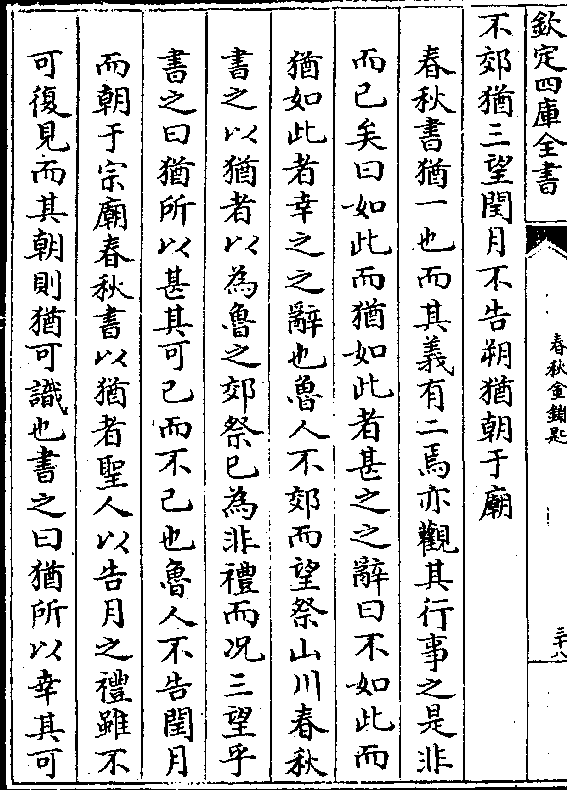 欽定四庫全書
春秋金鎖匙
三十八
不郊猶三望閏月不告朔猶朝于廟
春秋書猶一也而其義有二焉亦觀其行事之是非
而已矣曰如此而猶如此者甚之之辭曰不如此而
猶如此者幸之之辭也魯人不郊而望祭山川春秋
書之以猶者以為魯之郊祭已為非禮而况三望乎
書之曰猶所以甚其可已而不已也魯人不告閏月
而朝于宗廟春秋書以猶者聖人以告月之禮雖不
可復見而其朝則猶可識也書之曰猶所以幸其可